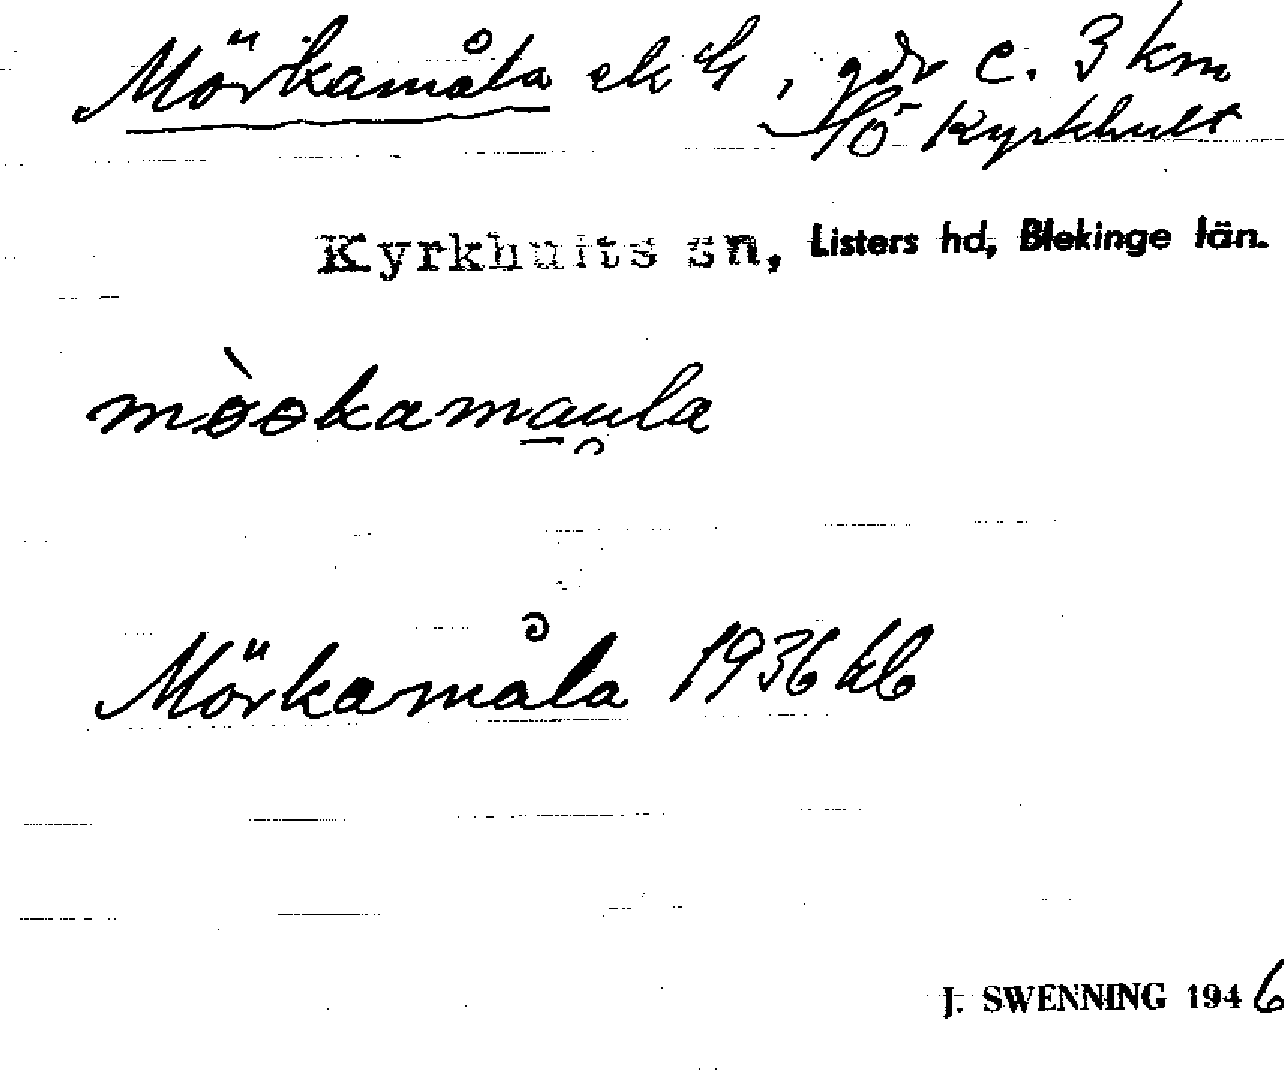 Mörkamåla ek 4/1, gdr c. 3 km
SÖ Kyrkhult
Kyrkhults sn, Listers hd, Blekinge län.
mòokamaula
Mörkamåla 1936 kb
J. SWENNING 1946